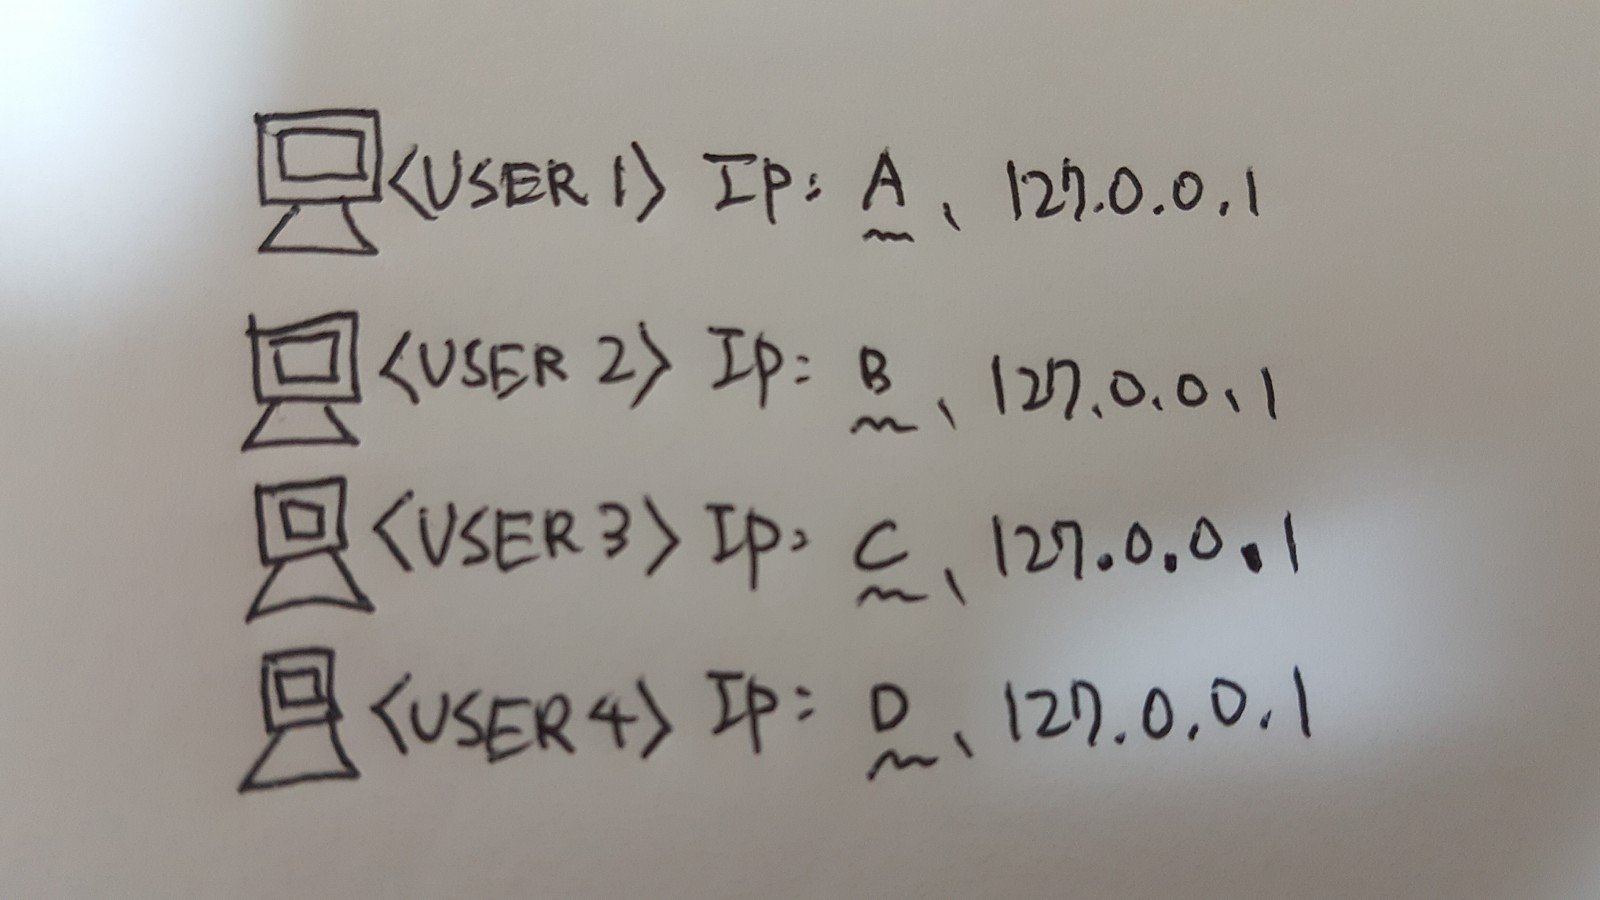 <USER 1> Ip: A, 127.0.0.1
<USER 2> Ip: B, 127.0.0.1
<USER 3> Ip: C, 127.0.0.1
<USER 4> Ip: D, 127.0.0.1